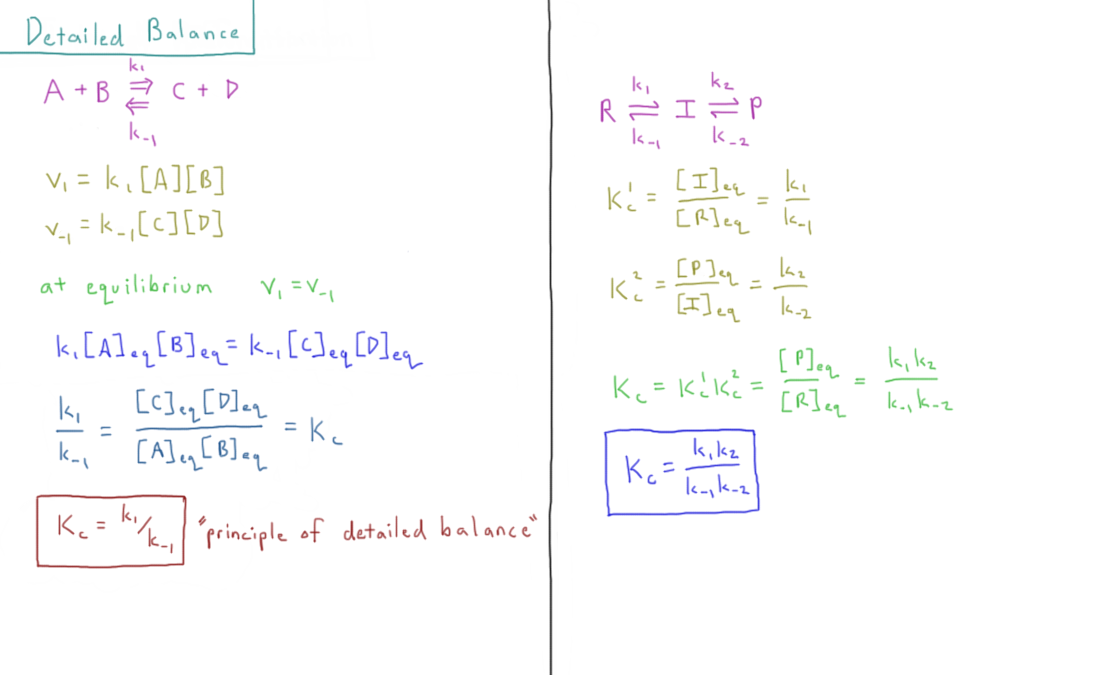 Detailed Balance
k₁
A + B ⇌ C + D
k₋₁
v₁ = k₁[A][B]
v₋₁ = k₋₁[C][D]
at equilibrium v₁ = v₋₁
k₁[A]eq[B]eq = k₋₁[C]eq[D]eq
k₁/k₋₁ = [C]eq[D]eq/[A]eq[B]eq = Kc
Kc = k₁/k₋₁ "principle of detailed balance"
k₁ k₂
R ⇌ I ⇌ P
k₋₁ k₋₂
Kc¹ = [I]eq/[R]eq = k₁/k₋₁
Kc² = [P]eq/[I]eq = k₂/k₋₂
Kc = Kc¹Kc² = [P]eq/[R]eq = k₁k₂/k₋₁k₋₂
Kc = k₁k₂/k₋₁k₋₂